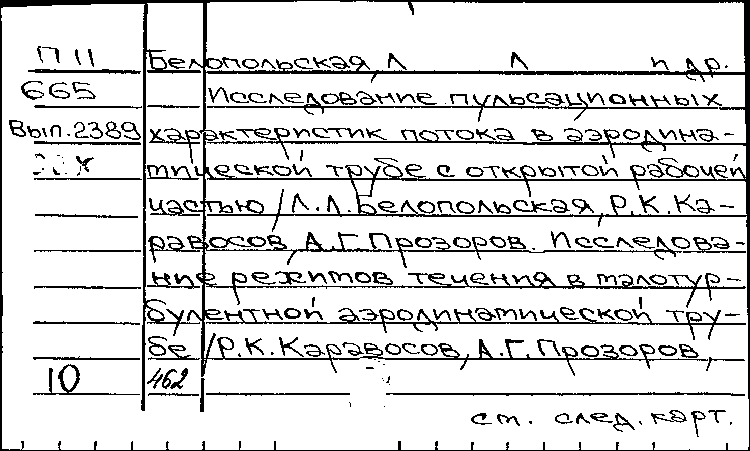 П 11 Белопольская, Л Л и др.
665 Исследование пульсационных
Вып.2389 характеристик потока в аэродина-
мической трубе с открытой рабочей
частью / Л.Л.Белопольская, Р.К.Ка-
равосов, А.Г.Прозоров. Исследова-
ние режимов течения в малотур-
булентной аэродинамической тру-
бе / Р.К.Каравосов, А.Г.Прозоров,
10 462
см. след. карт.